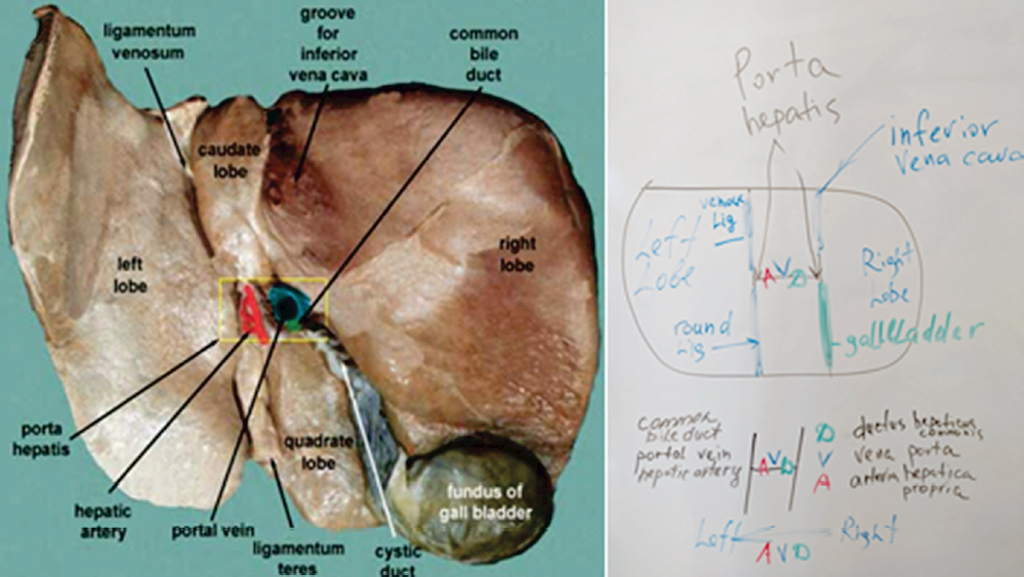 ligamentum
venosum
groove
for
inferior
vena cava
common
bile
duct
caudate
lobe
left
lobe
right
lobe
A
porta
hepatis
hepatic
artery
portal vein
quadrate
lobe
ligamentum
teres
cystic
duct
fundus of
gall bladder
Porta
hepatis
inferior
vena cava
Left
Lobe
venous
Lig
A V D
Right
Lobe
round
Lig
gallbladder
common
bile duct
portal vein
hepatic artery
A V D
D ductus hepaticus
communis
V vena porta
A arteria hepatica
propria
Left Right
A V D